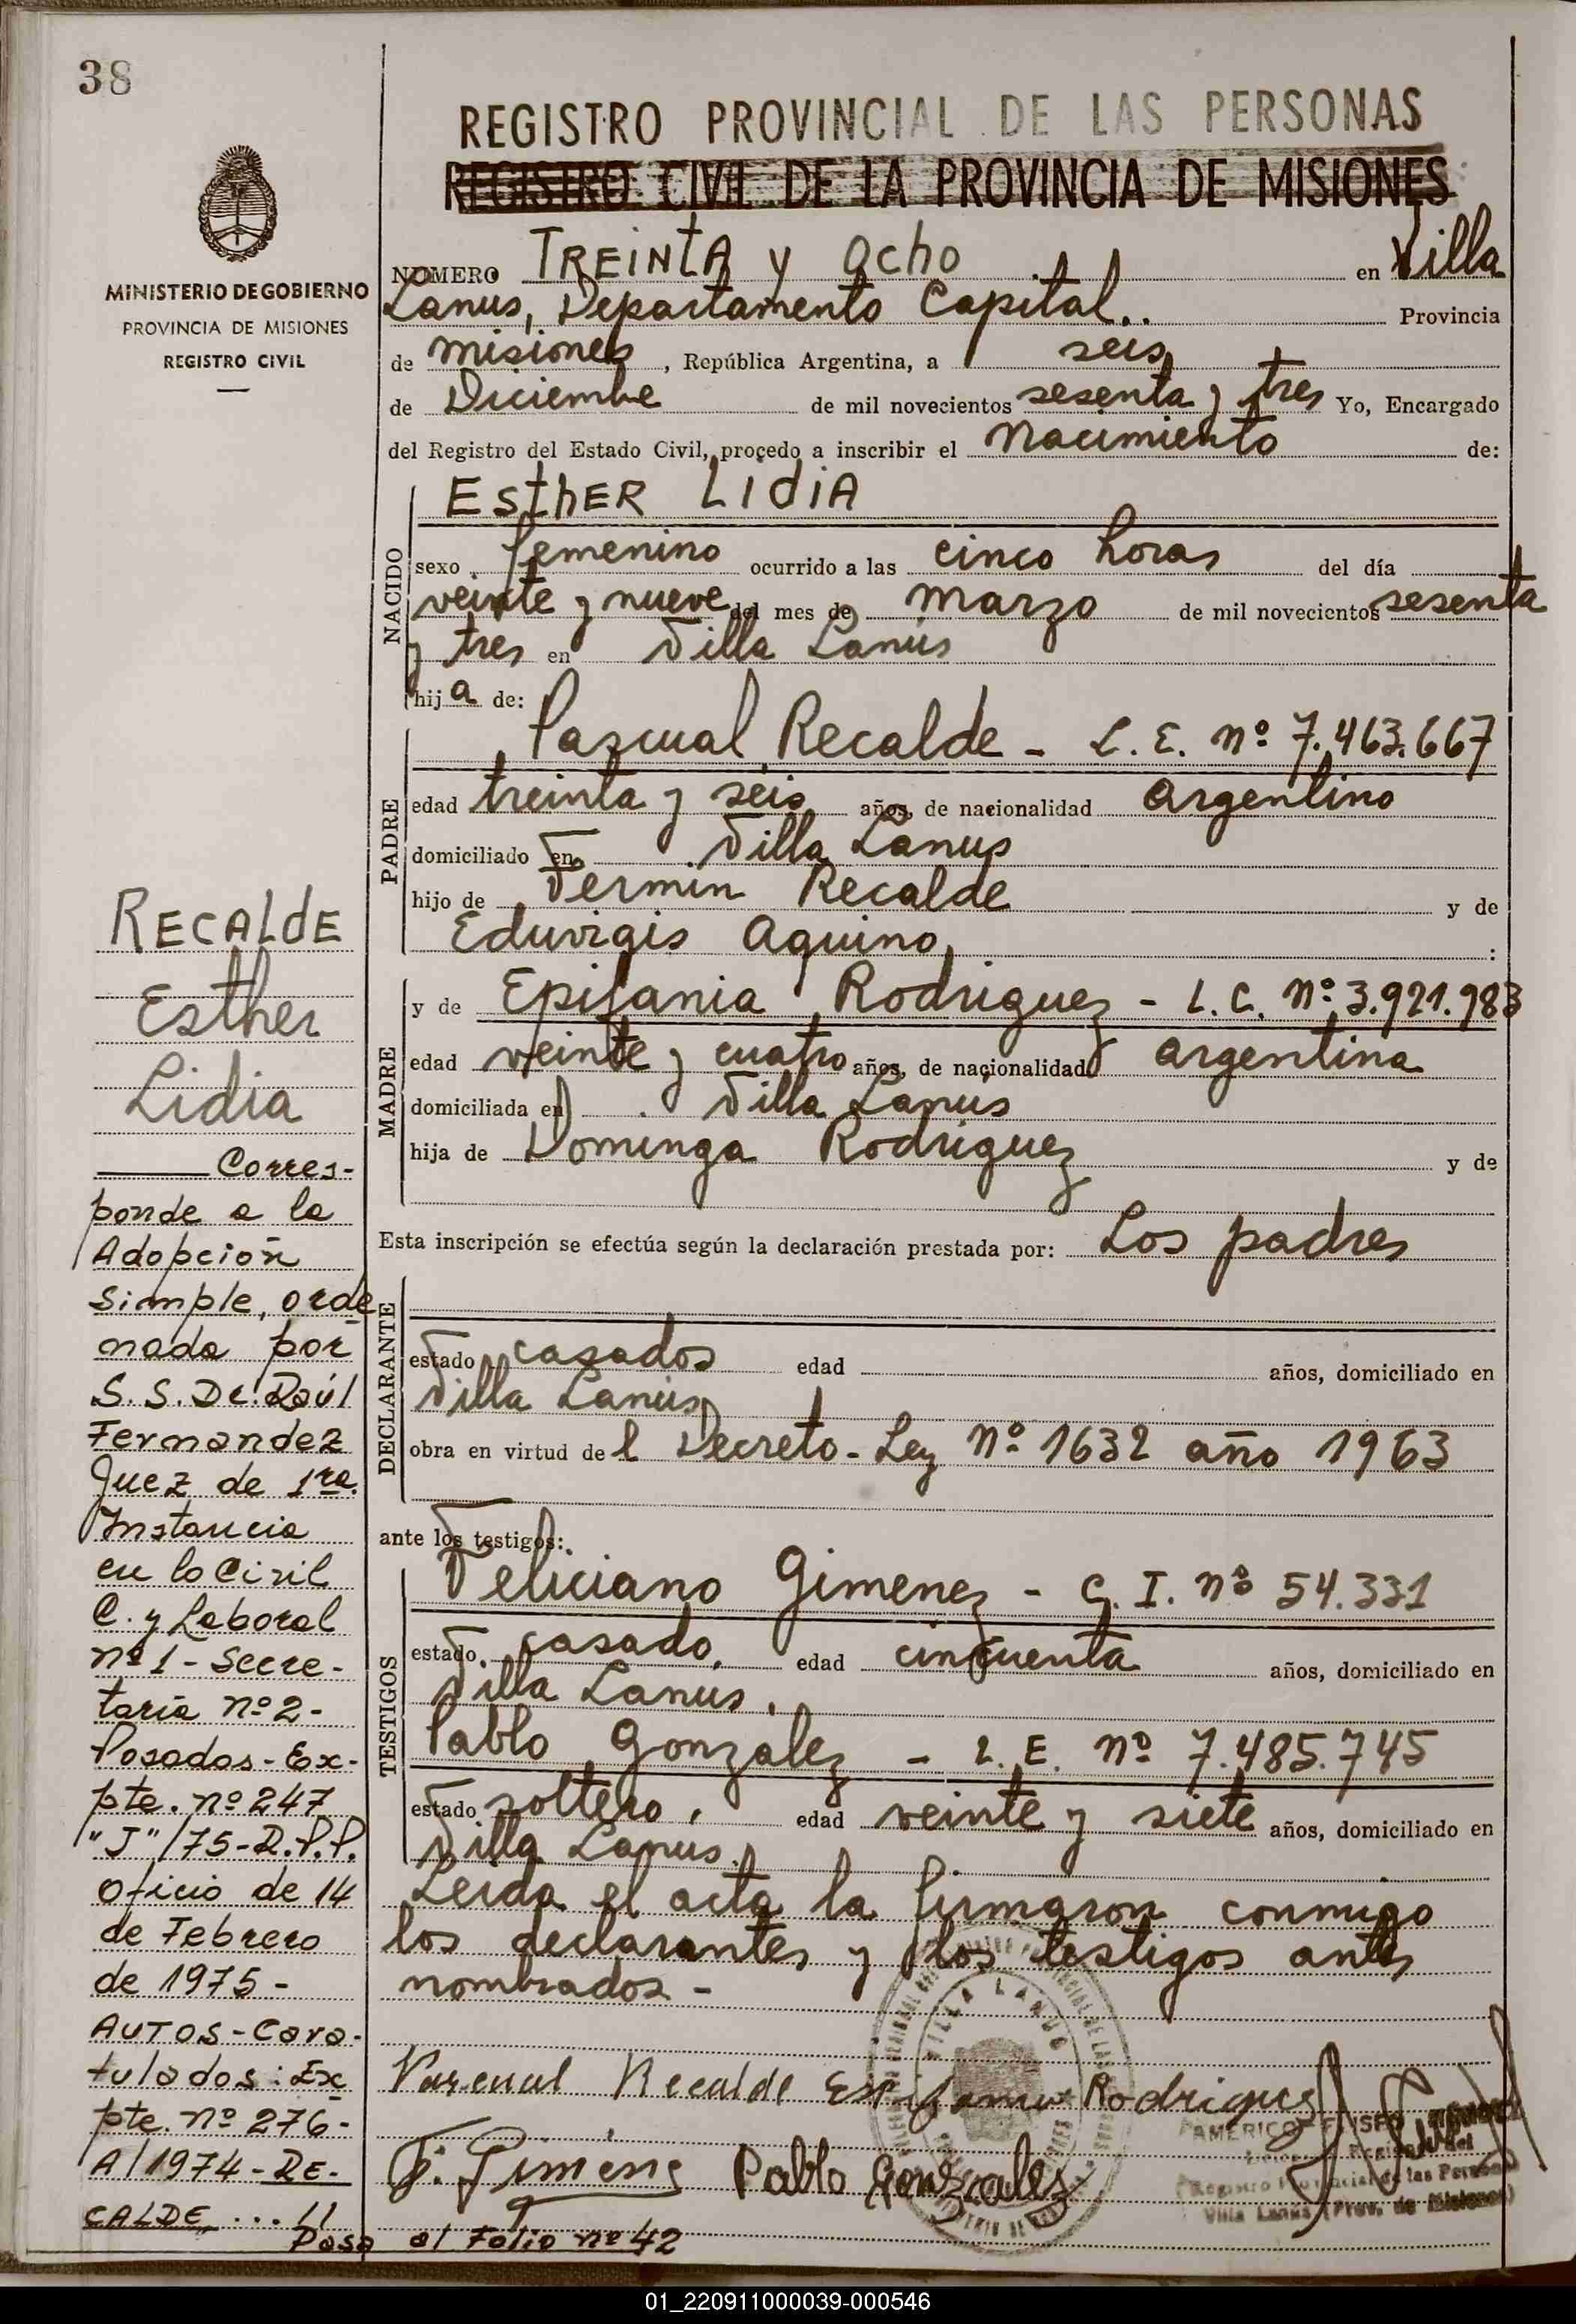 38
MINISTERIO DE GOBIERNO
PROVINCIA DE MISIONES
REGISTRO CIVIL
RECALDE
Esther
Lidia
Corres-
ponde a la
Adopción
Simple, orde
nada por
S.S. Dr. Raúl
Fernandez
Juez de 1ra.
Instancia
en lo Civil
C. y Laboral
nº 1 - Secre-
taría nº 2 -
Posadas - Ex-
pte. nº 247
"J"/75 - R.P.P.
Oficio de 14
de Febrero
de 1975 -
AUTOS - Cara-
tulados: Ex
pte. nº 276-
A/1974 - RE-
CALDE ... //
Pasa al Folio nº 42
REGISTRO PROVINCIAL DE LAS PERSONAS
REGISTRO CIVIL DE LA PROVINCIA DE MISIONES
NUMERO TREINTA y ocho en Villa
Lanus, Departamento Capital.. Provincia
de misiones, República Argentina, a seis
de Diciembre de mil novecientos sesenta y tres Yo, Encargado
del Registro del Estado Civil, procedo a inscribir el Nacimiento de:
NACIDO
EsthER LIdiA
sexo femenino ocurrido a las cinco horas del día
veinte y nueve del mes de marzo de mil novecientos sesenta
y tres en Villa Lanús
hija de:
PADRE
Pascual Recalde - L. E. nº 7.463.667
edad treinta y seis años, de nacionalidad argentino
domiciliado en Villa Lanus
hijo de Fermin Recalde y de
Eduvigis Aquino :
MADRE
y de Epifania Rodriguez - L. C. nº 3.921.983
edad veinte y cuatro años, de nacionalidad argentina
domiciliada en Villa Lanus
hija de Dominga Rodriguez y de
Esta inscripción se efectúa según la declaración prestada por: Los padres
DECLARANTE
estado casados edad años, domiciliado en
Villa Lanús
obra en virtud del Decreto-Ley nº 1632 año 1963
ante los testigos:
TESTIGOS
Feliciano Gimenez - C. I. nº 54.331
estado casado, edad cincuenta años, domiciliado en
Villa Lanus.
Pablo González - L. E. nº 7.485.745
estado soltero, edad veinte y siete años, domiciliado en
Villa Lanus.
Leida el acta la firmaron conmigo
los declarantes y los testigos antes
nombrados -
Pascual Recalde Epifania Rodriguez
F. Gimenez Pablo Gonzalez
VILLA LANUS
AMERICO ELISEO
Registro Provincial de las Personas
Villa Lanús (Prov. de Misiones)
01_220911000039-000546